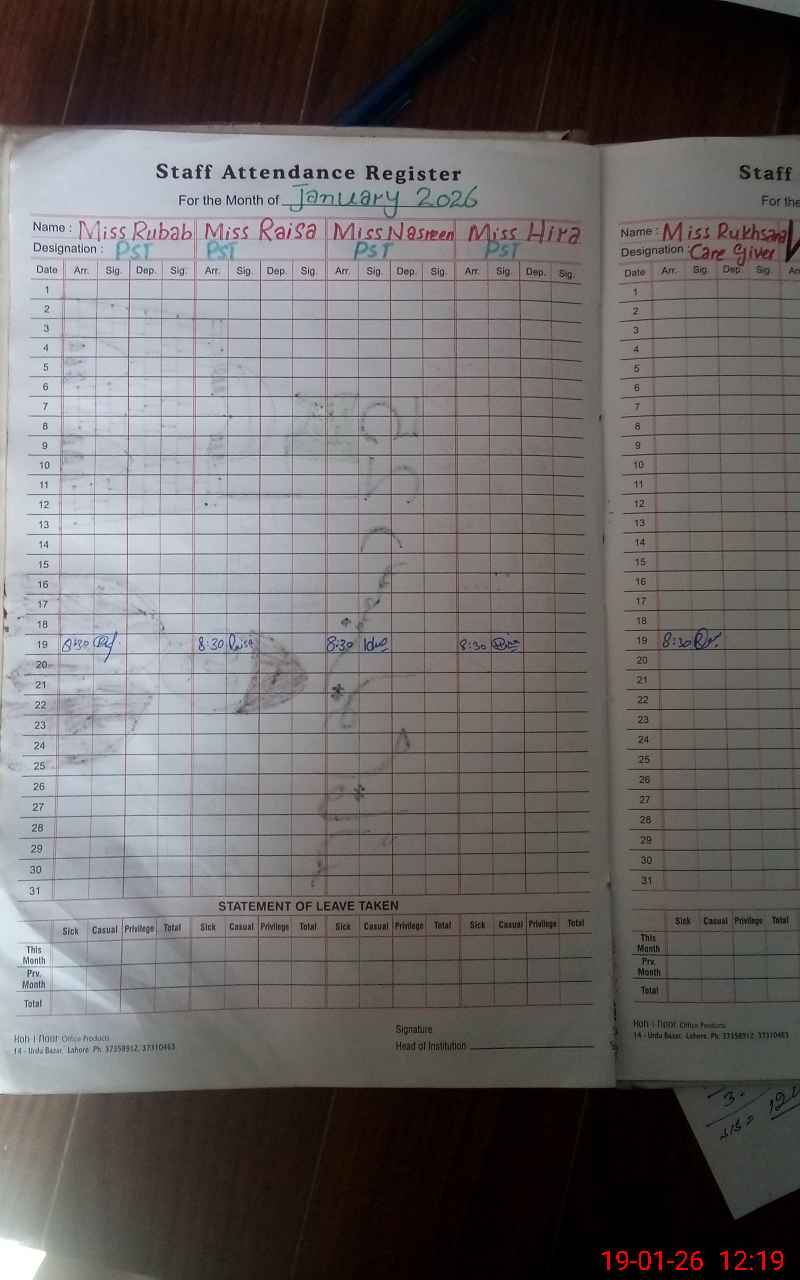 Staff Attendance Register
For the Month of January 2026
Name : Miss Rubab Miss Raisa Miss Nasreen Miss Hira
Designation : PST PST PST PST
Date Arr. Sig. Dep. Sig. Arr. Sig. Dep. Sig. Arr. Sig. Dep. Sig. Arr. Sig. Dep. Sig.
1
2
3
4
5
6
7
8
9
10
11
12
13
14
15
16
17
18
19 8:30 8:30 Raisa 8:30 8:30
20
21
22
23
24
25
26
27
28
29
30
31
STATEMENT OF LEAVE TAKEN
Sick Casual Privilege Total Sick Casual Privilege Total Sick Casual Privilege Total Sick Casual Privilege Total
This Month
Prv. Month
Total
Signature
Head of Institution
Koh-i-noor Office Products
14 - Urdu Bazar, Lahore. Ph: 37358912, 37310463
Staff
For the
Name : Miss Rukhsana
Designation : Care Giver
Date Arr. Sig. Dep. Sig. Arr
1
2
3
4
5
6
7
8
9
10
11
12
13
14
15
16
17
18
19 8:30
20
21
22
23
24
25
26
27
28
29
30
31
Sick Casual Privilege Total
This Month
Prv. Month
Total
Koh-i-noor Office Products
14 - Urdu Bazar, Lahore. Ph: 37358912, 37310463
19-01-26 12:19